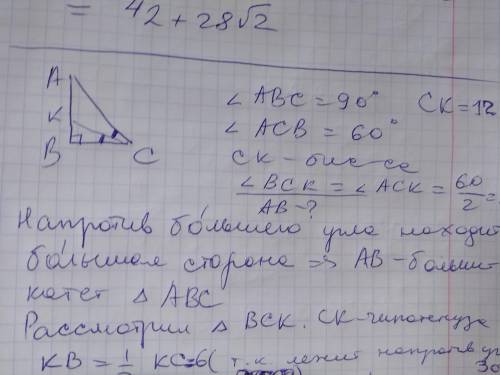 = 42 + 28√2
A
K
B
C
∠ ABC = 90° CK = 12
∠ ACB = 60°
CK - бис-са
∠ BCK = ∠ ACK = 60/2 =
AB - ?
Напротив бо́льшего угла находит
бо́льшая сторона => AB - больш
катет Δ ABC
Рассмотрим Δ BCK. CK - гипотенуза
KB = 1/2 KC = 6 ( т.к. лежит напротив уг
30